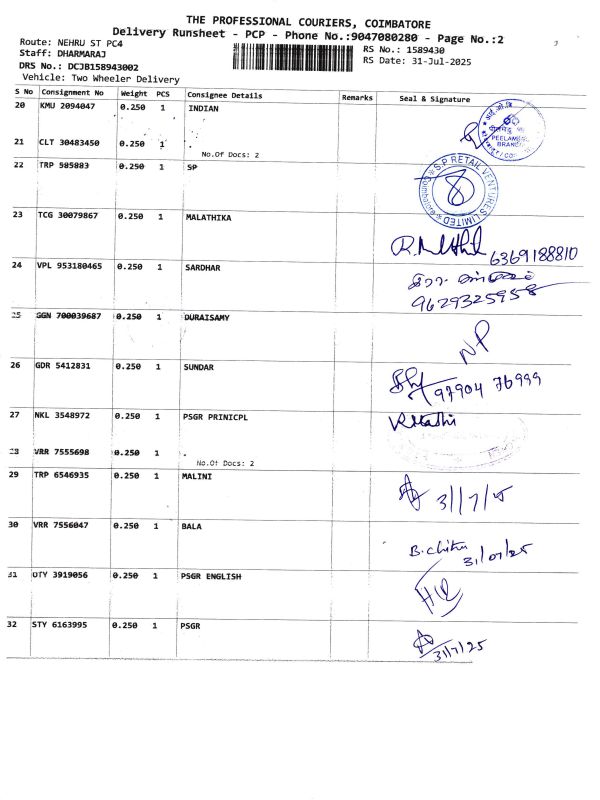 THE PROFESSIONAL COURIERS, COIMBATORE
Delivery Runsheet - PCP - Phone No.:9047080280 - Page No.:2
Route: NEHRU ST PC4
Staff: DHARMARAJ
RS No.: 1589430
RS Date: 31-Jul-2025
DRS No.: DCJB158943002
Vehicle: Two Wheeler Delivery
S No Consignment No Weight PCS Consignee Details Remarks Seal & Signature
20 KMU 2094047 0.250 1 INDIAN
PEELAMEDU
BRANCH
21 CLT 30483450 0.250 1 .
No.Of Docs: 2
22 TRP 585883 0.250 1 SP
S.P RETAIL VENTURES LIMITED
Coimbatore
23 TCG 30079867 0.250 1 MALATHIKA
6369188810
24 VPL 953180465 0.250 1 SARDHAR
9629325958
25 GGN 700039687 0.250 1 DURAISAMY
NP
26 GDR 5412831 0.250 1 SUNDAR
97904 76999
27 NKL 3548972 0.250 1 PSGR PRINICPL
28 VRR 7555698 0.250 1 .
No.Of Docs: 2
29 TRP 6546935 0.250 1 MALINI
31/7/25
30 VRR 7556047 0.250 1 BALA
B.chitra
31/07/25
31 OTY 3919056 0.250 1 PSGR ENGLISH
32 STY 6163995 0.250 1 PSGR
31/7/25